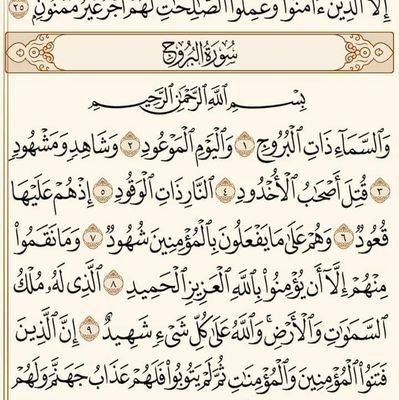 إِلَّا الَّذِينَ ءَامَنُوا وَعَمِلُوا الصَّٰلِحَٰتِ لَهُمْ أَجْرٌ غَيْرُ مَمْنُونٍ ٢٥
سُورَةُ الْبُرُوجِ
بِسْمِ اللَّهِ الرَّحْمَٰنِ الرَّحِيمِ
وَالسَّمَآءِ ذَاتِ الْبُرُوجِ ١ وَالْيَوْمِ الْمَوْعُودِ ٢ وَشَاهِدٍ وَمَشْهُودٍ
٣ قُتِلَ أَصْحَٰبُ الْأُخْدُودِ ٤ النَّارِ ذَاتِ الْوَقُودِ ٥ إِذْ هُمْ عَلَيْهَا
قُعُودٌ ٦ وَهُمْ عَلَىٰ مَا يَفْعَلُونَ بِالْمُؤْمِنِينَ شُهُودٌ ٧ وَمَا نَقَمُوا
مِنْهُمْ إِلَّا أَن يُؤْمِنُوا بِاللَّهِ الْعَزِيزِ الْحَمِيدِ ٨ الَّذِي لَهُۥ مُلْكُ
السَّمَٰوَٰتِ وَالْأَرْضِ ۚ وَاللَّهُ عَلَىٰ كُلِّ شَيْءٍ شَهِيدٌ ٩ إِنَّ الَّذِينَ
فَتَنُوا الْمُؤْمِنِينَ وَالْمُؤْمِنَٰتِ ثُمَّ لَمْ يَتُوبُوا فَلَهُمْ عَذَابُ جَهَنَّمَ وَلَهُمْ